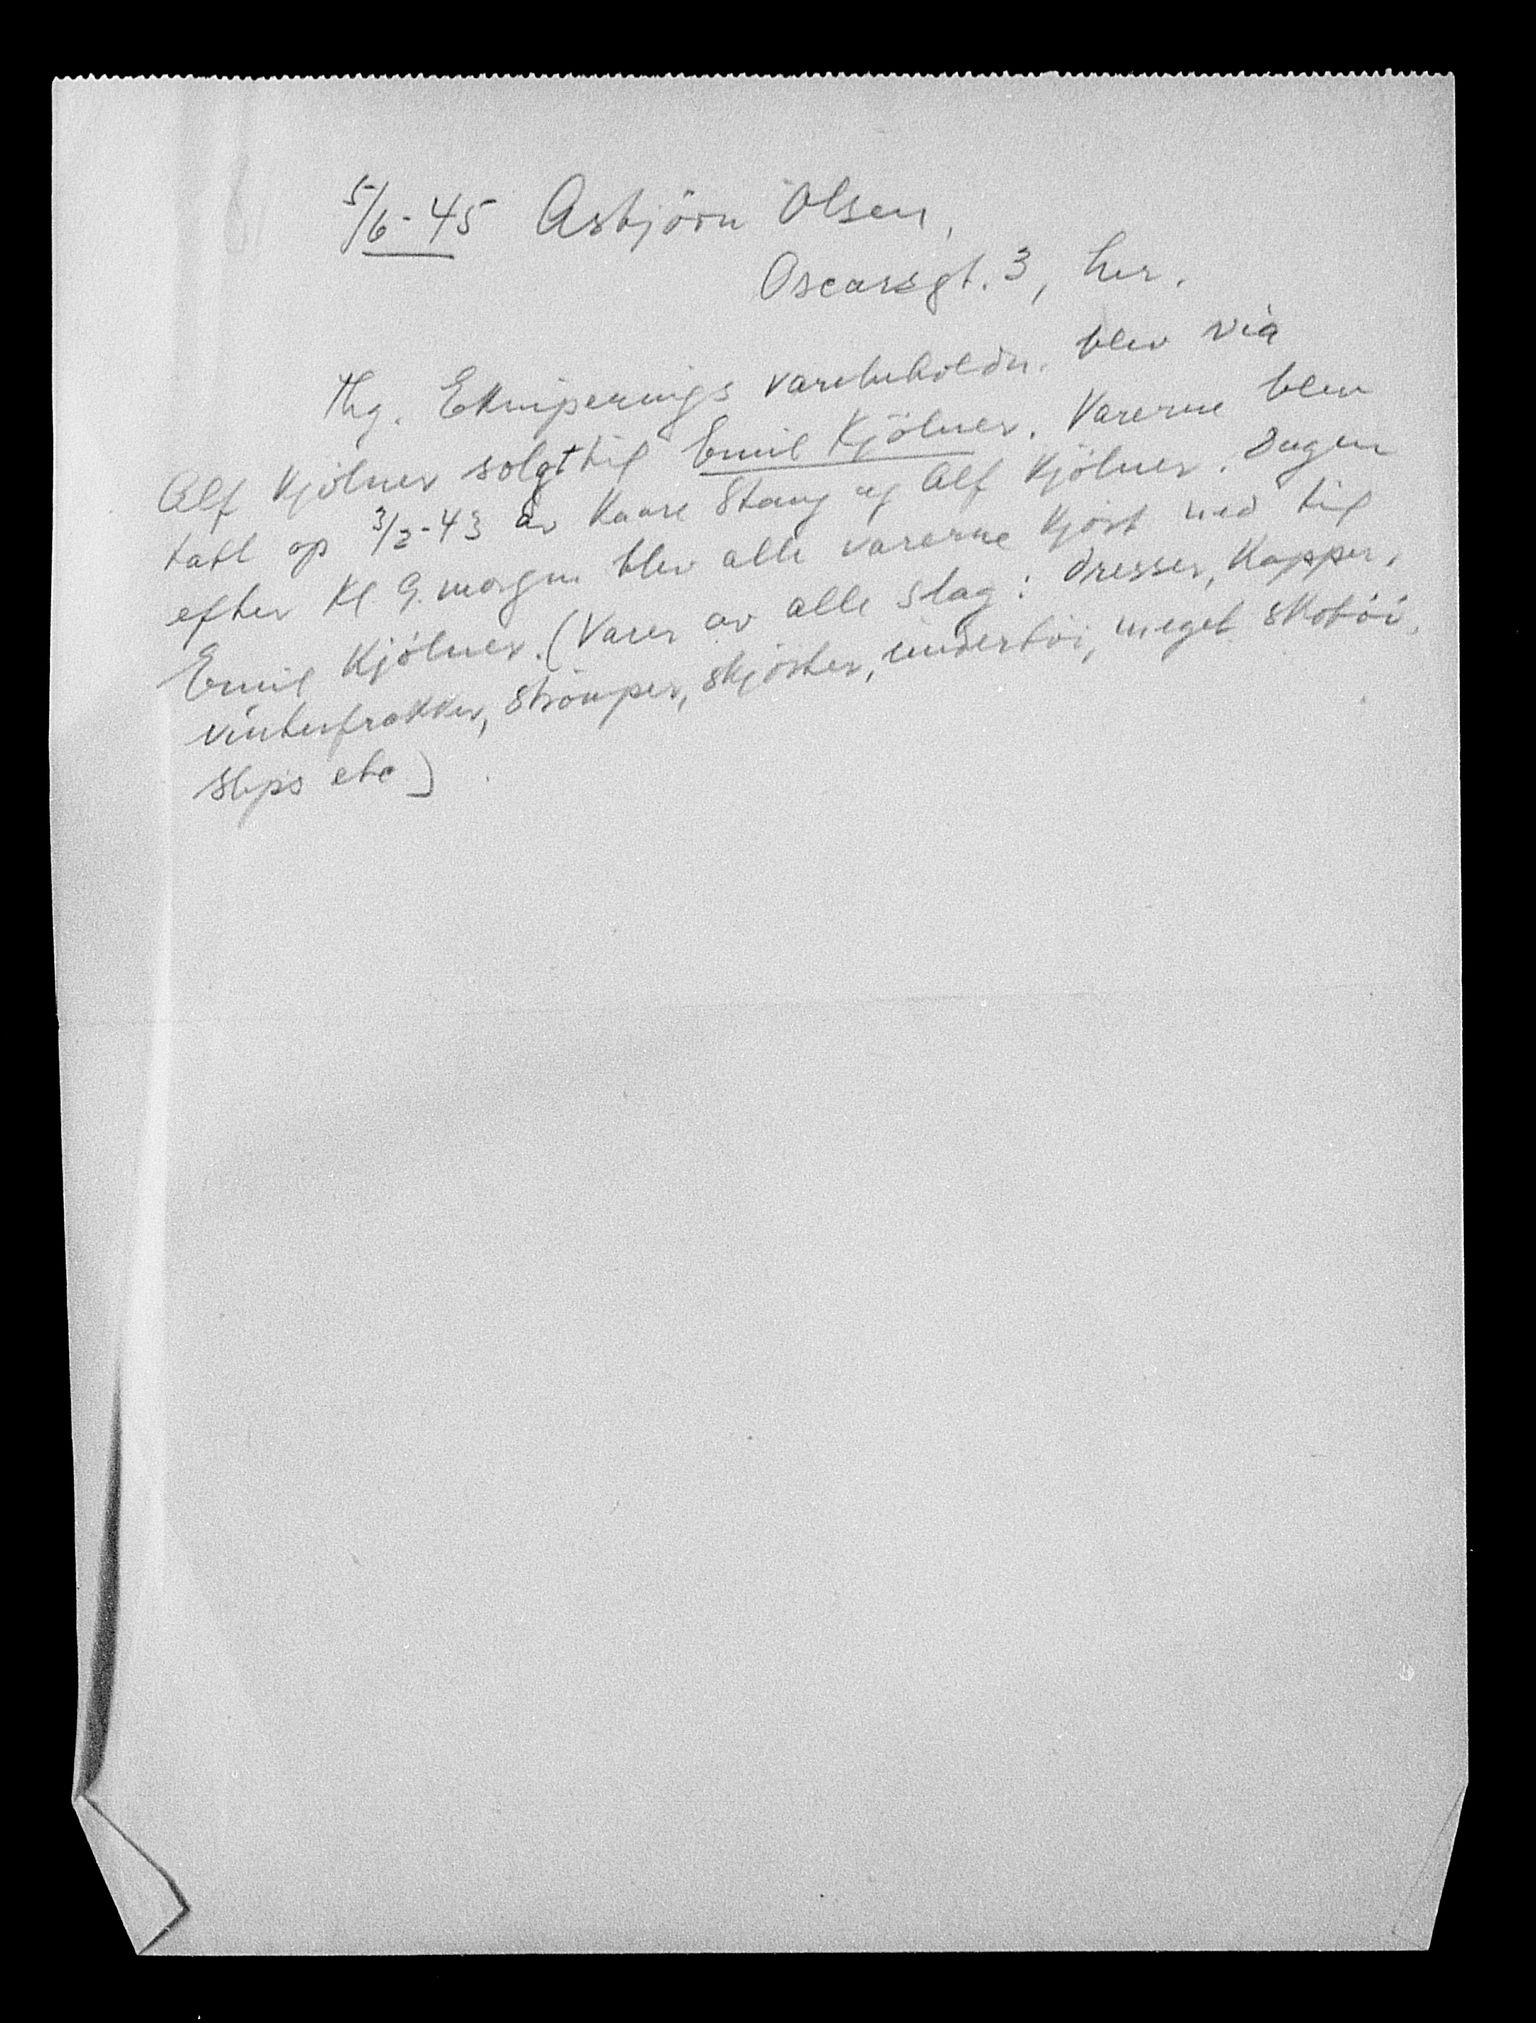 5/6-45 Asbjörn Olsen,
Oscarsgt. 3, her.
Thg. Ekviperings varebeholdn. blev via
Alf Kjölner solgt til Emil Kjölner. Varerne blev
tatt op 3/2-43 av Kaare Stang og Alf Kjölner. Dagen
efter kl 9. morgen blev alle varerne kjört ned til
Emil Kjölner. (Varer av alle slag: dresser, kapper,
vinterfrakker, strömper, skjörter, undertöi, meget skotöi,
slips etc)